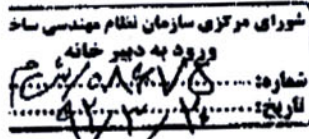 شورای مرکزی سازمان نظام مهندسی ساخ
ورود به دبیر خانه
شماره:
تاریخ: